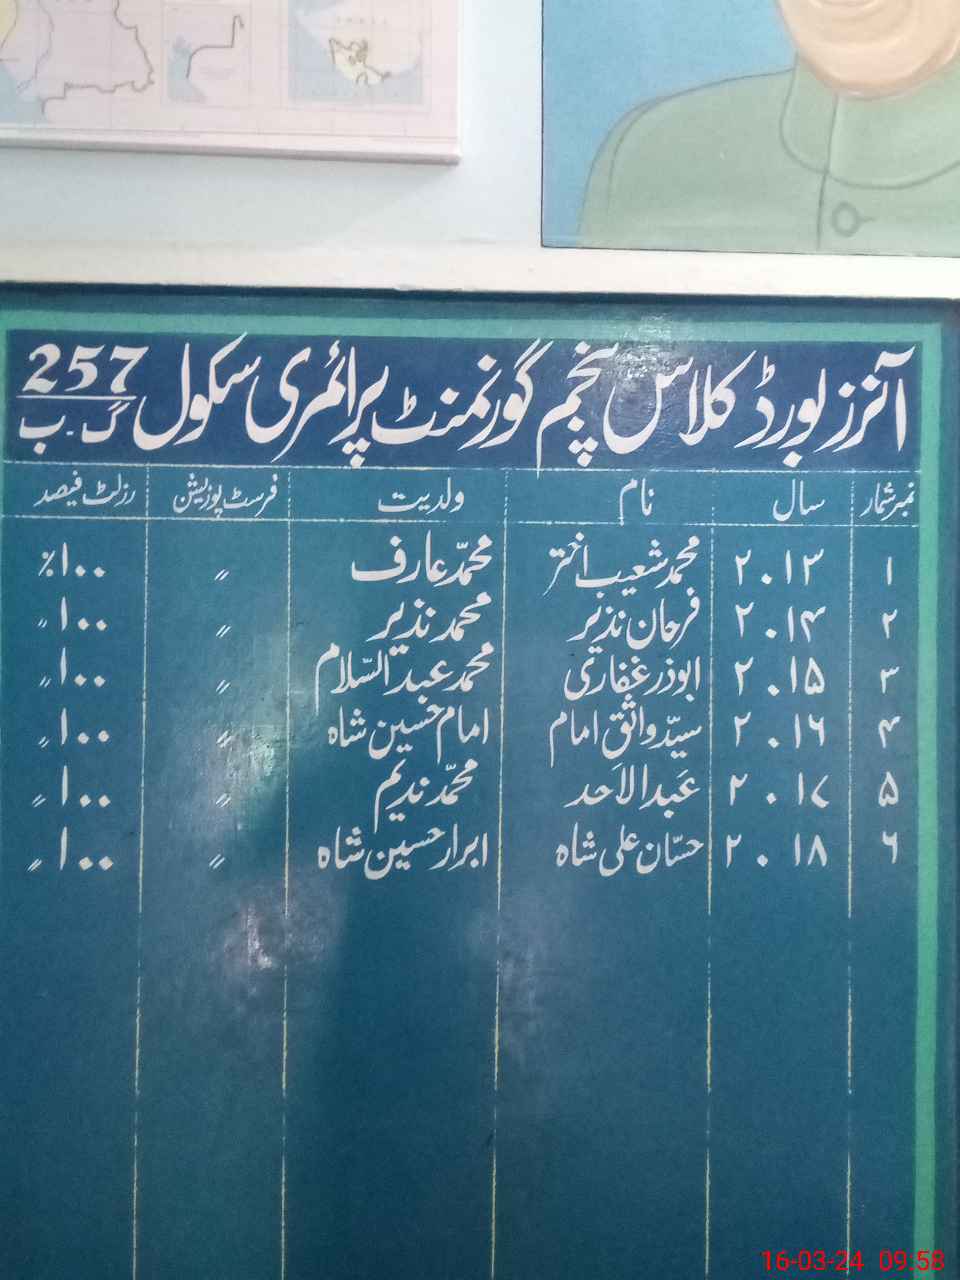 آنرز بورڈ کلاس پنجم گورنمنٹ پرائمری سکول 257 گ۔ب
نمبر شمار سال نام ولدیت فرسٹ پوزیشن رزلٹ فیصد
۱ ۲۰۱۳ محمد شعیب اختر محمّد عارف 〃 ۱۰۰٪
۲ ۲۰۱۴ فرحان نذیر محمد نذیر 〃 ۱۰۰ 〃
۳ ۲۰۱۵ ابوذر غفاری محمد عبد السّلام 〃 ۱۰۰ 〃
۴ ۲۰۱۶ سیّد واثق امام امام حسین شاہ 〃 ۱۰۰ 〃
۵ ۲۰۱۷ عَبدالاَحد محمّد ندیم 〃 ۱۰۰ 〃
۶ ۲۰۱۸ حسّان علی شاہ ابرار حسین شاہ 〃 ۱۰۰ 〃
16-03-24 09:58